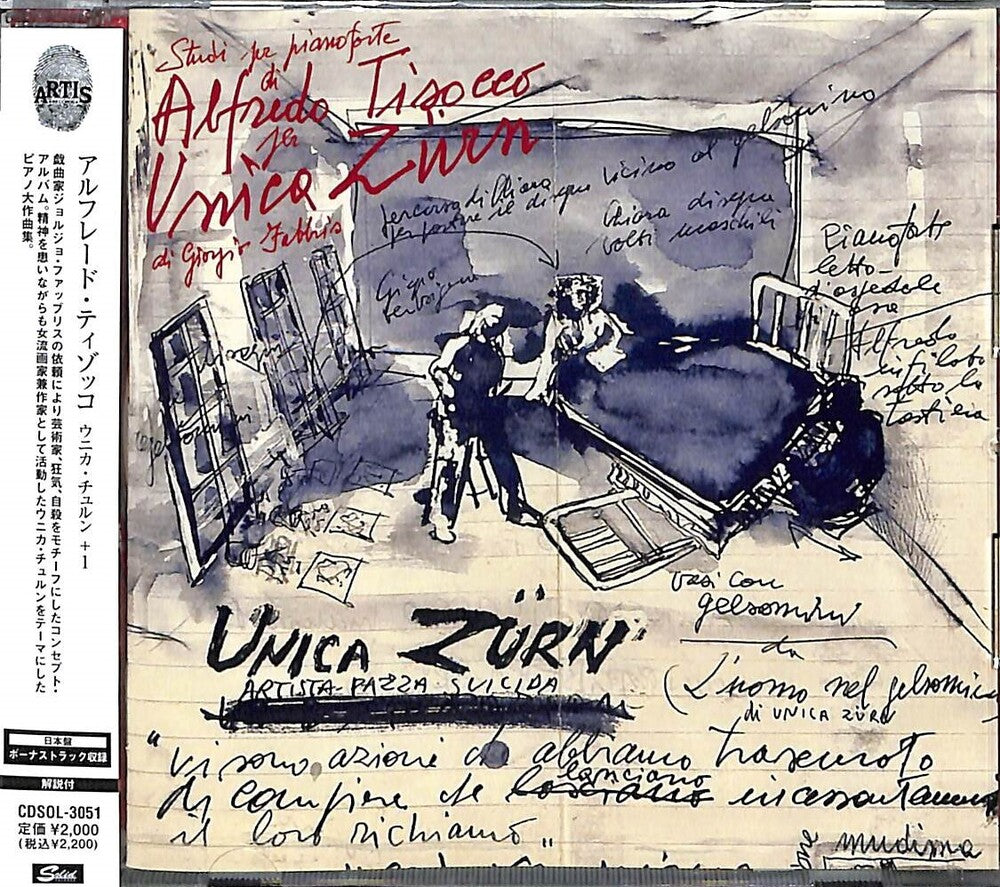 ARTIS
アルフレード・ティゾッコ ウニカ・チュルン +1
戯曲家ジョルジョ・ファッブリスの依頼により芸術家、狂気、自殺をモチーフにしたコンセプト・
アルバム。精神を患いながらも女流画家兼作家として活動したウニカ・チュルンをテーマにした
ピアノ大作曲集。
日本盤
ボーナストラック収録
解説付
CDSOL-3051
定価 ¥2,000
(税込¥2,200)
Solid
Studi per pianoforte
di
Alfredo Tisocco
per
Unica Zürn
di Giorgio Fabbris
percorso di Chiara
per portare il disegno vicino al gelsomino
Chiara disegna
volti maschili
Pianoforte
letto
d'ospedale
Alfredo
infilato
sotto la
tastiera
vasi con
gelsomini
da
(L'uomo nel gelsomino
di UNICA ZÜRN
UNICA ZÜRN
ARTISTA PAZZA SUICIDA
"vi sono azioni che abbiamo trascurato
di compiere che lanciano incessantemente
il loro richiamo"
mudima